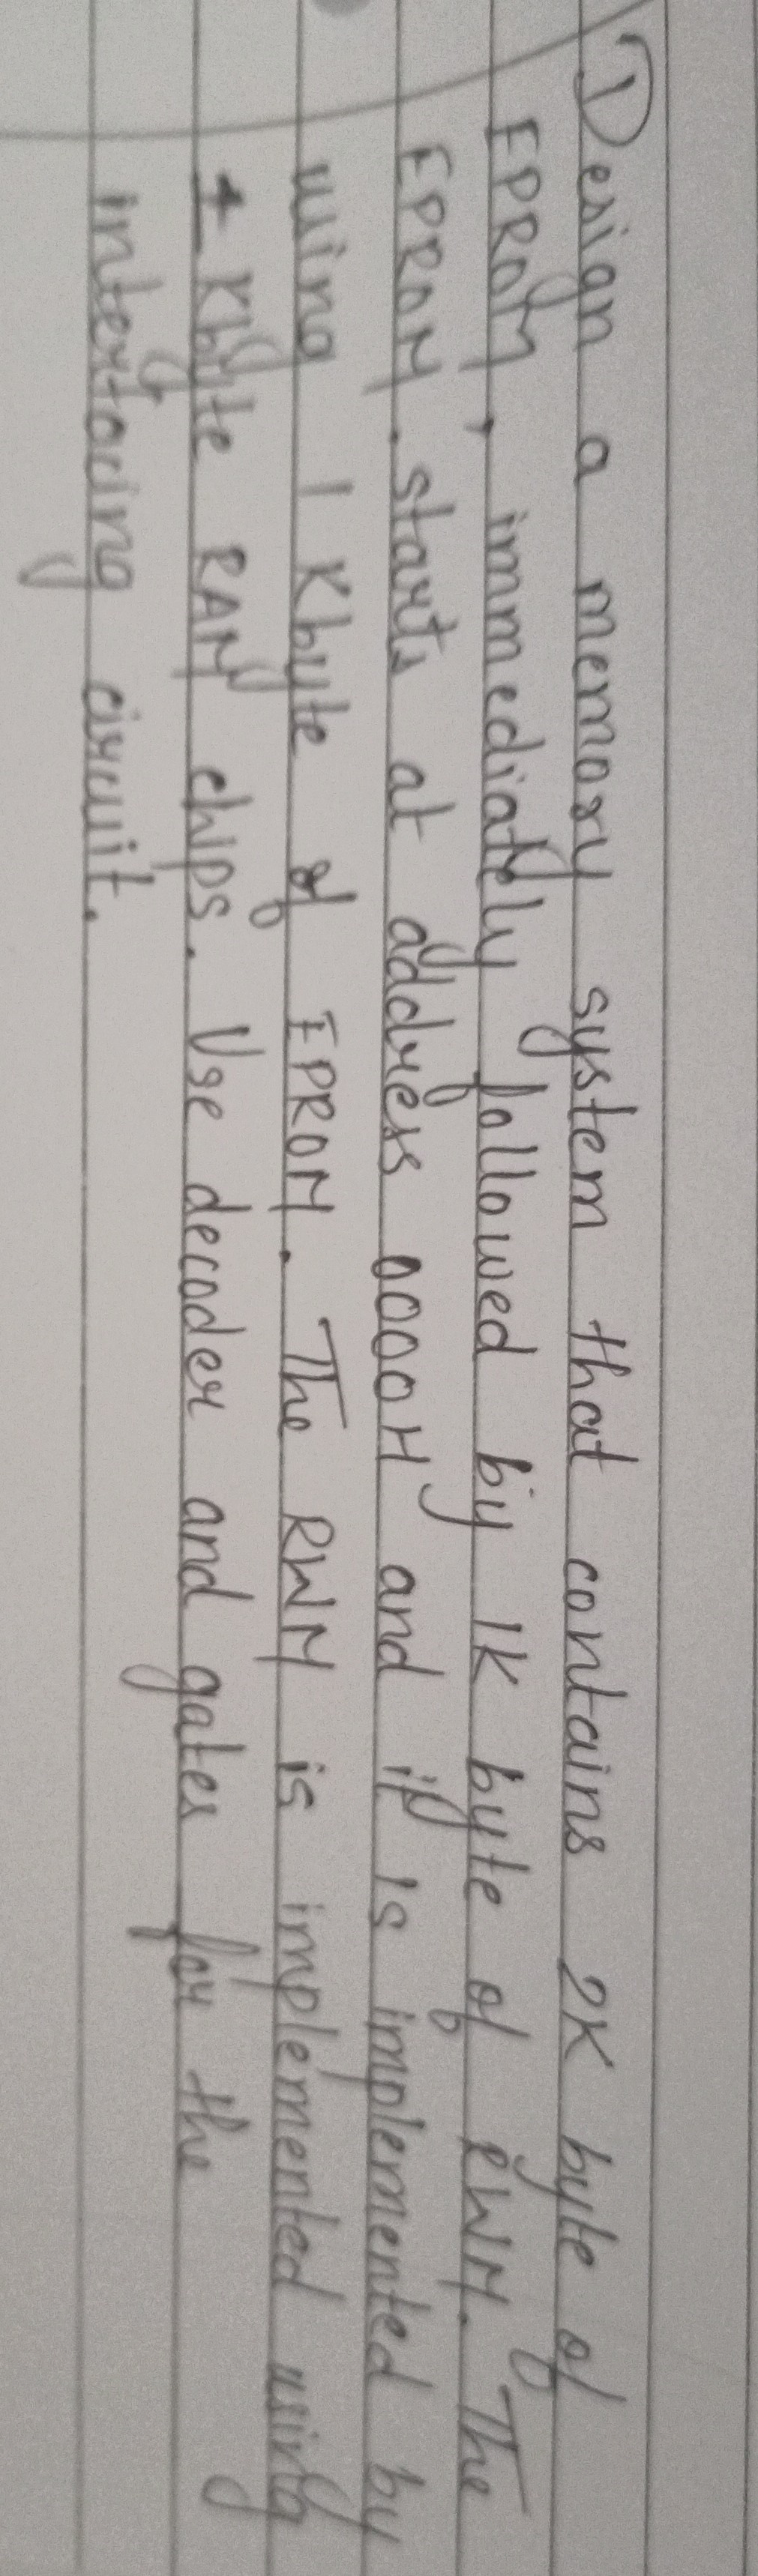 Design a memory system that contains 2K byte of
EPROM, immediately followed by 1K byte of RWM. The
EPROM starts at address 0000H and it is implemented by
using 1 Kbyte of EPROM. The RWM is implemented using
1 Kbyte RAM chips. Use decoder and gates for the
interfacing circuit.